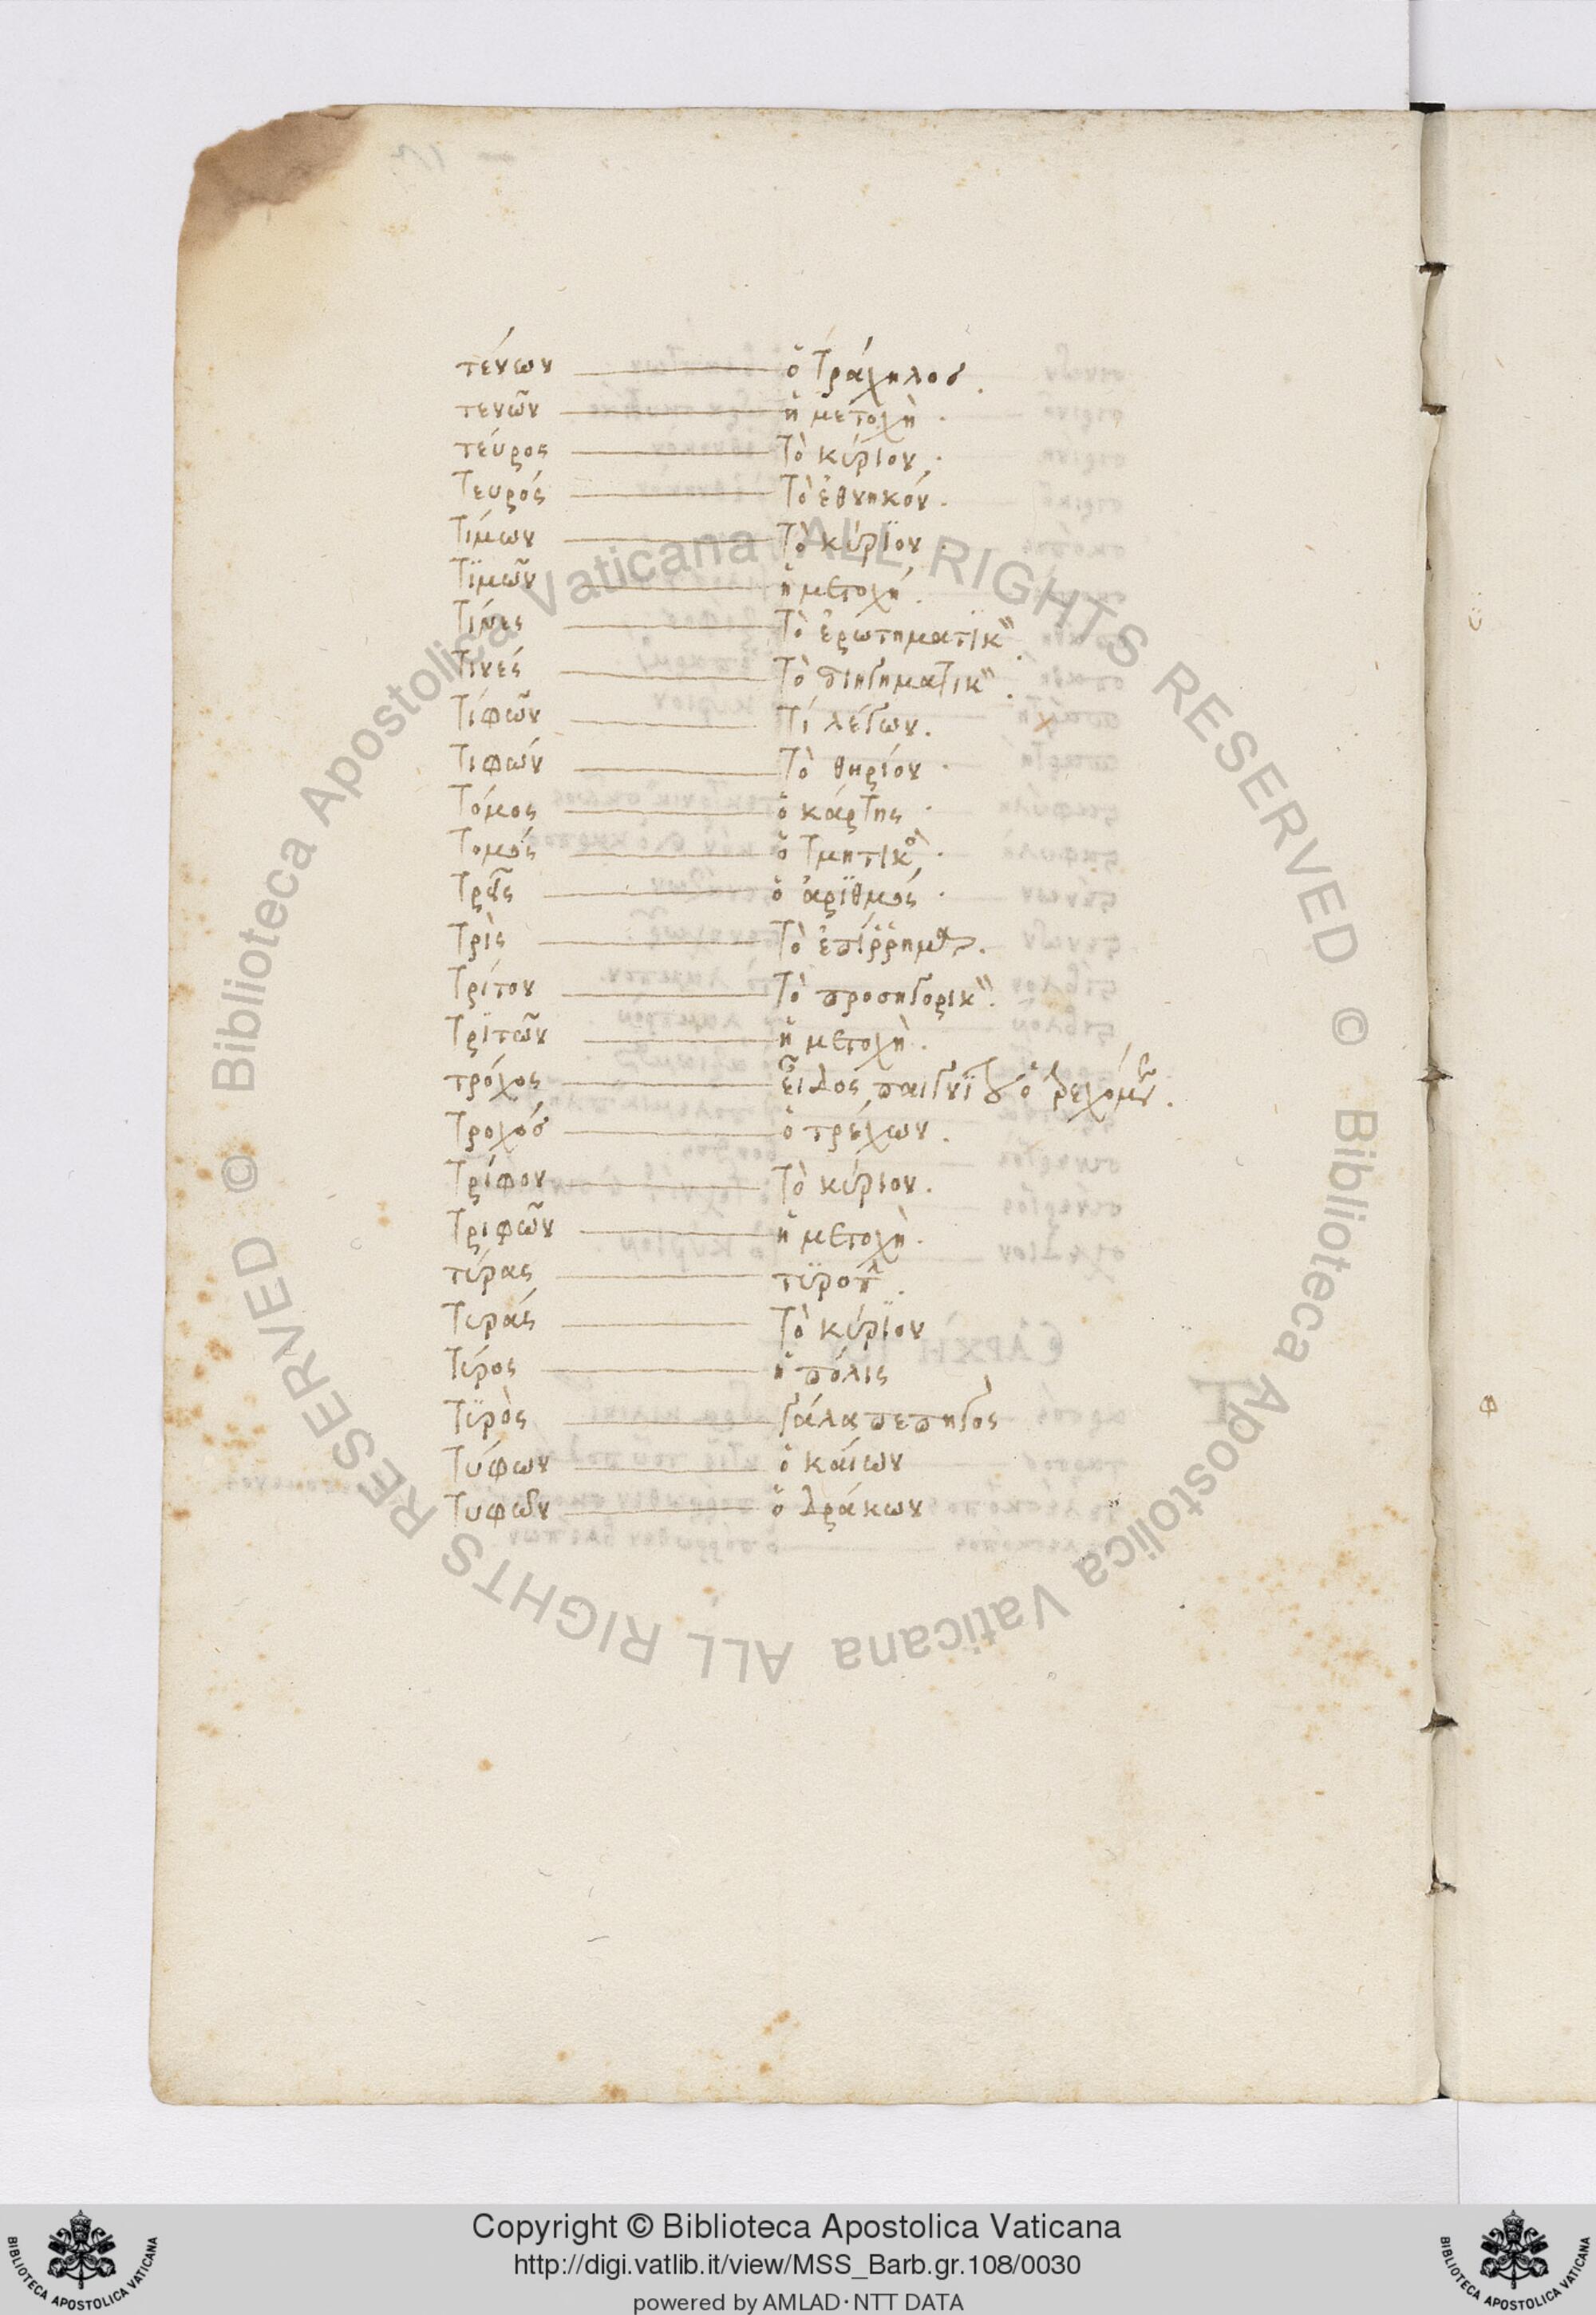 τένων — ὁ τράχηλος.
τενῶν — ἡ μετοχὴ.
τεύρος — τὸ κύριον.
τευρός — τὸ ἐθνηκόν.
τίμων — τὸ κύρϊον.
τϊμῶν — ἡ μετοχή.
τίνες — τὸ ἐρωτηματϊκ".
τινές — τὸ διηγηματικ".
τίφῶν — τί λέγων.
τιφών — τὸ θηρίον.
τόμος — ὁ κάρτης.
τομός — ὁ τμητικο.
τρεῖς — ὁ ἀρϊθμός.
τρὶς — τὸ ἐπίῤῥημα.
τρίτον — τὸ προσηγορικ".
τρϊτῶν — ἡ μετοχὴ.
τρόχος — εἶδος παιγνϊδ ὁ τρεχόμεν.
τροχός — ὁ τρέχων.
τρίφον — τὸ κύριον.
τριφῶν — ἡ μετοχὴ.
τύρας — τϋροπ.
τυράς — τὸ κύρϊον
τύρος — ἡ πόλις
τϋρὸς — γάλα πεπηγὸς
τύφων — ὁ καίων
τυφῶν — ὁ δράκων
Copyright © Biblioteca Apostolica Vaticana
http://digi.vatlib.it/view/MSS_Barb.gr.108/0030
powered by AMLAD·NTT DATA